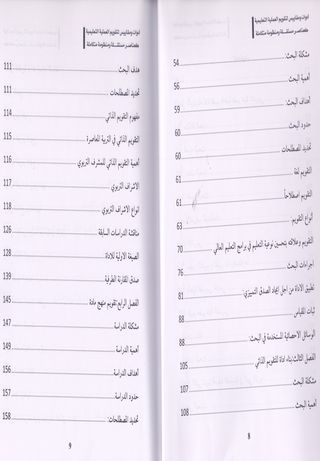 ادوات ومقاييس لتقويم العملية التعليمية
كعناصر مستقلة ومنظومة متكاملة
مشكلة البحث: 54
أهمية البحث 56
أهداف البحث: 59
حدود البحث 60
تحديد المصطلحات 60
التقويم لغة 61
التقويم اصطلاحاً 61
أنواع التقويم: 63
التقويم وعلاقته بتحسين نوعية التعليم في برامج التعليم العالي 70
اجراءات البحث 76
تطبيق الاداة من اجل إيجاد الصدق التمييزي: 81
ثبات المقياس 88
الوسائل الاحصائية المستخدمة في البحث: 88
الفصل الثالث: بناء اداة للتقويم الذاتي 105
مشكلة البحث 107
أهمية البحث 108
8
ادوات ومقاييس لتقويم العملية التعليمية
كعناصر مستقلة ومنظومة متكاملة
هدف البحث 111
تحديد المصطلحات 111
مفهوم التقويم الذاتي 114
التقويم الذاتي في التربية المعاصرة 115
أهمية التقويم الذاتي للمشرف التربوي 116
الاشراف التربوي 117
انواع الاشراف التربوي 118
مناقشة الدراسات السابقة 126
الصيغة الاولية للاداة 128
صدق المقارنة الطرفية 139
الفصل الرابع تقويم منهج مادة 145
مشكلة الدراسة 147
أهمية الدراسة 149
أهداف الدراسة 156
حدود الدراسة 157
تحديد المصطلحات: 158
9